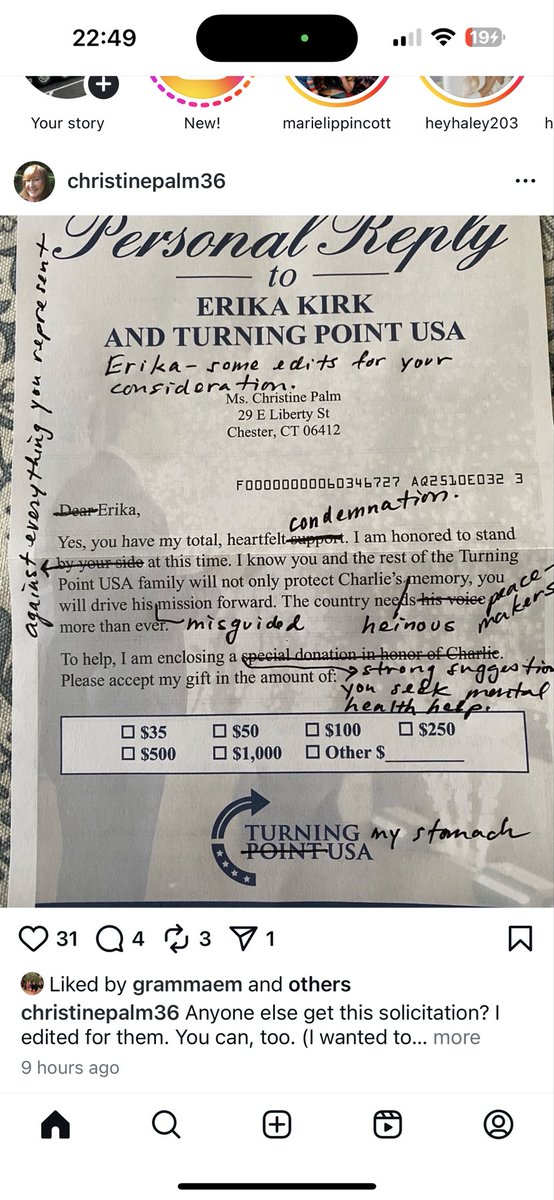 22:49
19
Your story
New!
marielippincott
heyhaley203
h
christinepalm36
Personal Reply
to
ERIKA KIRK
AND TURNING POINT USA
Erika - some edits for your
consideration.
Ms. Christine Palm
29 E Liberty St
Chester, CT 06412
F00000000060346727 AQ2510E032 3
Dear Erika,
condemnation.
Yes, you have my total, heartfelt support. I am honored to stand
by your side at this time. I know you and the rest of the Turning
against everything you represent
Point USA family will not only protect Charlie's memory, you
will drive his mission forward. The country needs his voice peace-
makers
more than ever. misguided heinous
To help, I am enclosing a special donation in honor of Charlie.
Please accept my gift in the amount of: strong suggestion
you seek mental
health help.
$35 $50 $100 $250
$500 $1,000 Other $
TURNING my stomach
POINT USA
31 4 3 1
Liked by grammaem and others
christinepalm36 Anyone else get this solicitation? I
edited for them. You can, too. (I wanted to... more
9 hours ago